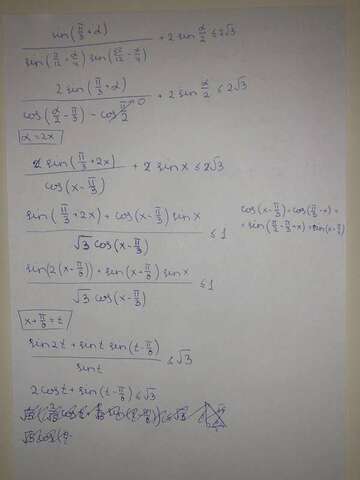 sin(π/3+α) / sin(π/12+α/4) sin(5π/12-α/4) + 2 sin α/2 ≤ 2√3
2 sin(π/3+α) / cos(α/2-π/3) - cos π/2 + 2 sin α/2 ≤ 2√3
α=2x
2 sin(π/3+2x) / cos(x-π/3) + 2 sin x ≤ 2√3
sin(π/3+2x) + cos(x-π/3) sin x / √3 cos(x-π/3) ≤ 1
cos(x-π/3)=cos(π/3-x)=
sin(2(x+π/6)) + sin(x+π/6) sin x / √3 cos(x-π/3) ≤ 1
x+π/6=t
sin2t + sint sin(t-π/6) / sint ≤ √3
2cost + sin(t-π/6) ≤ √3